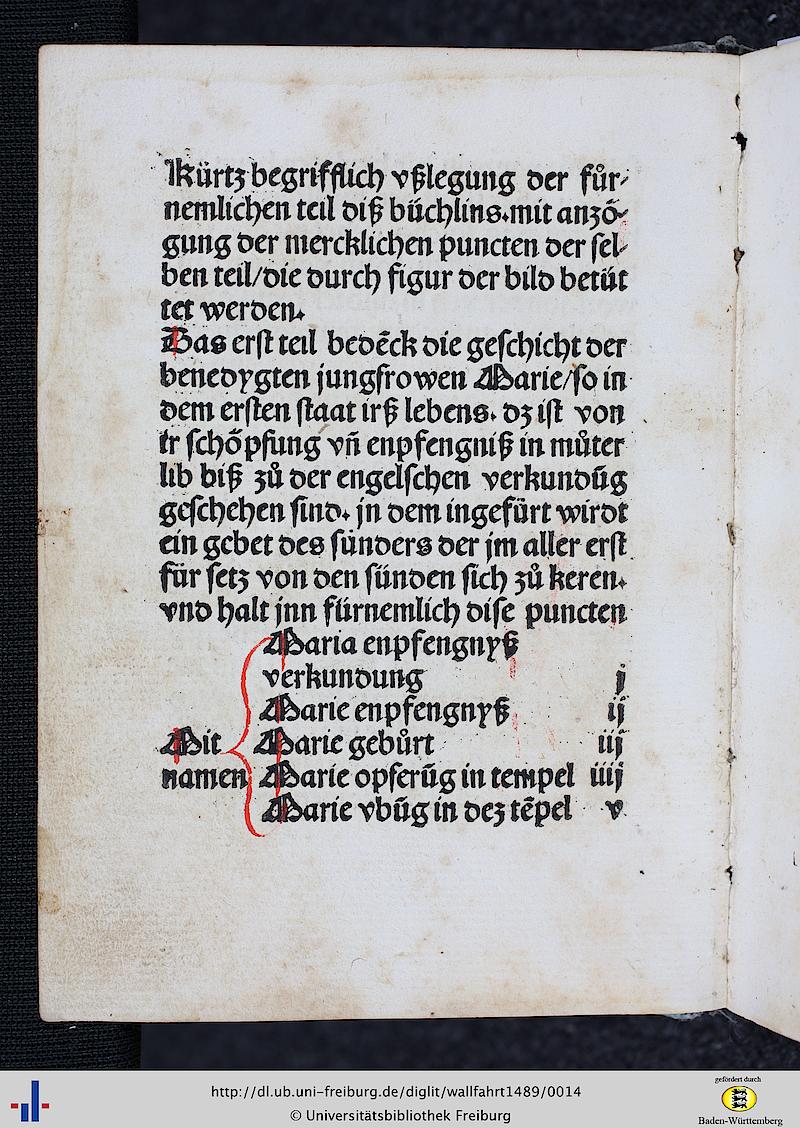 Kürtz begrifflich vßlegung der fůr⸗
nemlichen teil diß büchlins.mit anzö⸗
gung der mercklichen puncten der ſel⸗
ben teil/die durch figur der bild betüt
tet werden.
Das erſt teil bedēck die geſchicht der
benedygten jungfrowen Marie/ſo in
dem erſten ſtaat irß lebens. dz iſt von
ir ſchöpfung vn̄ enpfengniß in můter
lib biß zů der engelſchen verkundūg
geſchehen ſind. jn dem ingefürt wirdt
ein gebet des ſünders der jm aller erſt
für ſetz von den ſünden ſich zů keren.
vnd halt jnn fürnemlich diſe puncten
Maria enpfengnyß
verkundung j
Marie enpfengnyß ij
Mit Marie gebůrt iij
namen Marie opferūg in tempel iiij
Marie vbūg in dez tēpel v
http://dl.ub.uni-freiburg.de/diglit/wallfahrt1489/0014
© Universitätsbibliothek Freiburg
gefördert durch
Baden-Württemberg